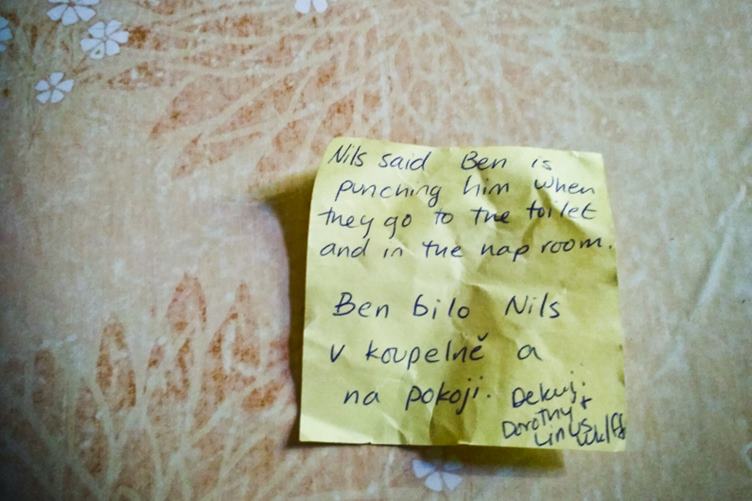 Nils said Ben is
punching him when
they go to the toilet
and in the nap room.
Ben bilo Nils
v koupelně a
na pokoji.
Dekuji
Dorothy +
Linus Wulff